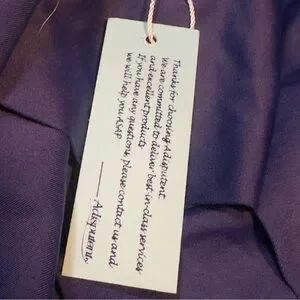 Thanks for choosing Adisputent
We are committed to deliver best-in-class services
and excellent products
If you have any questions, please contact us and
we will help you ASAP